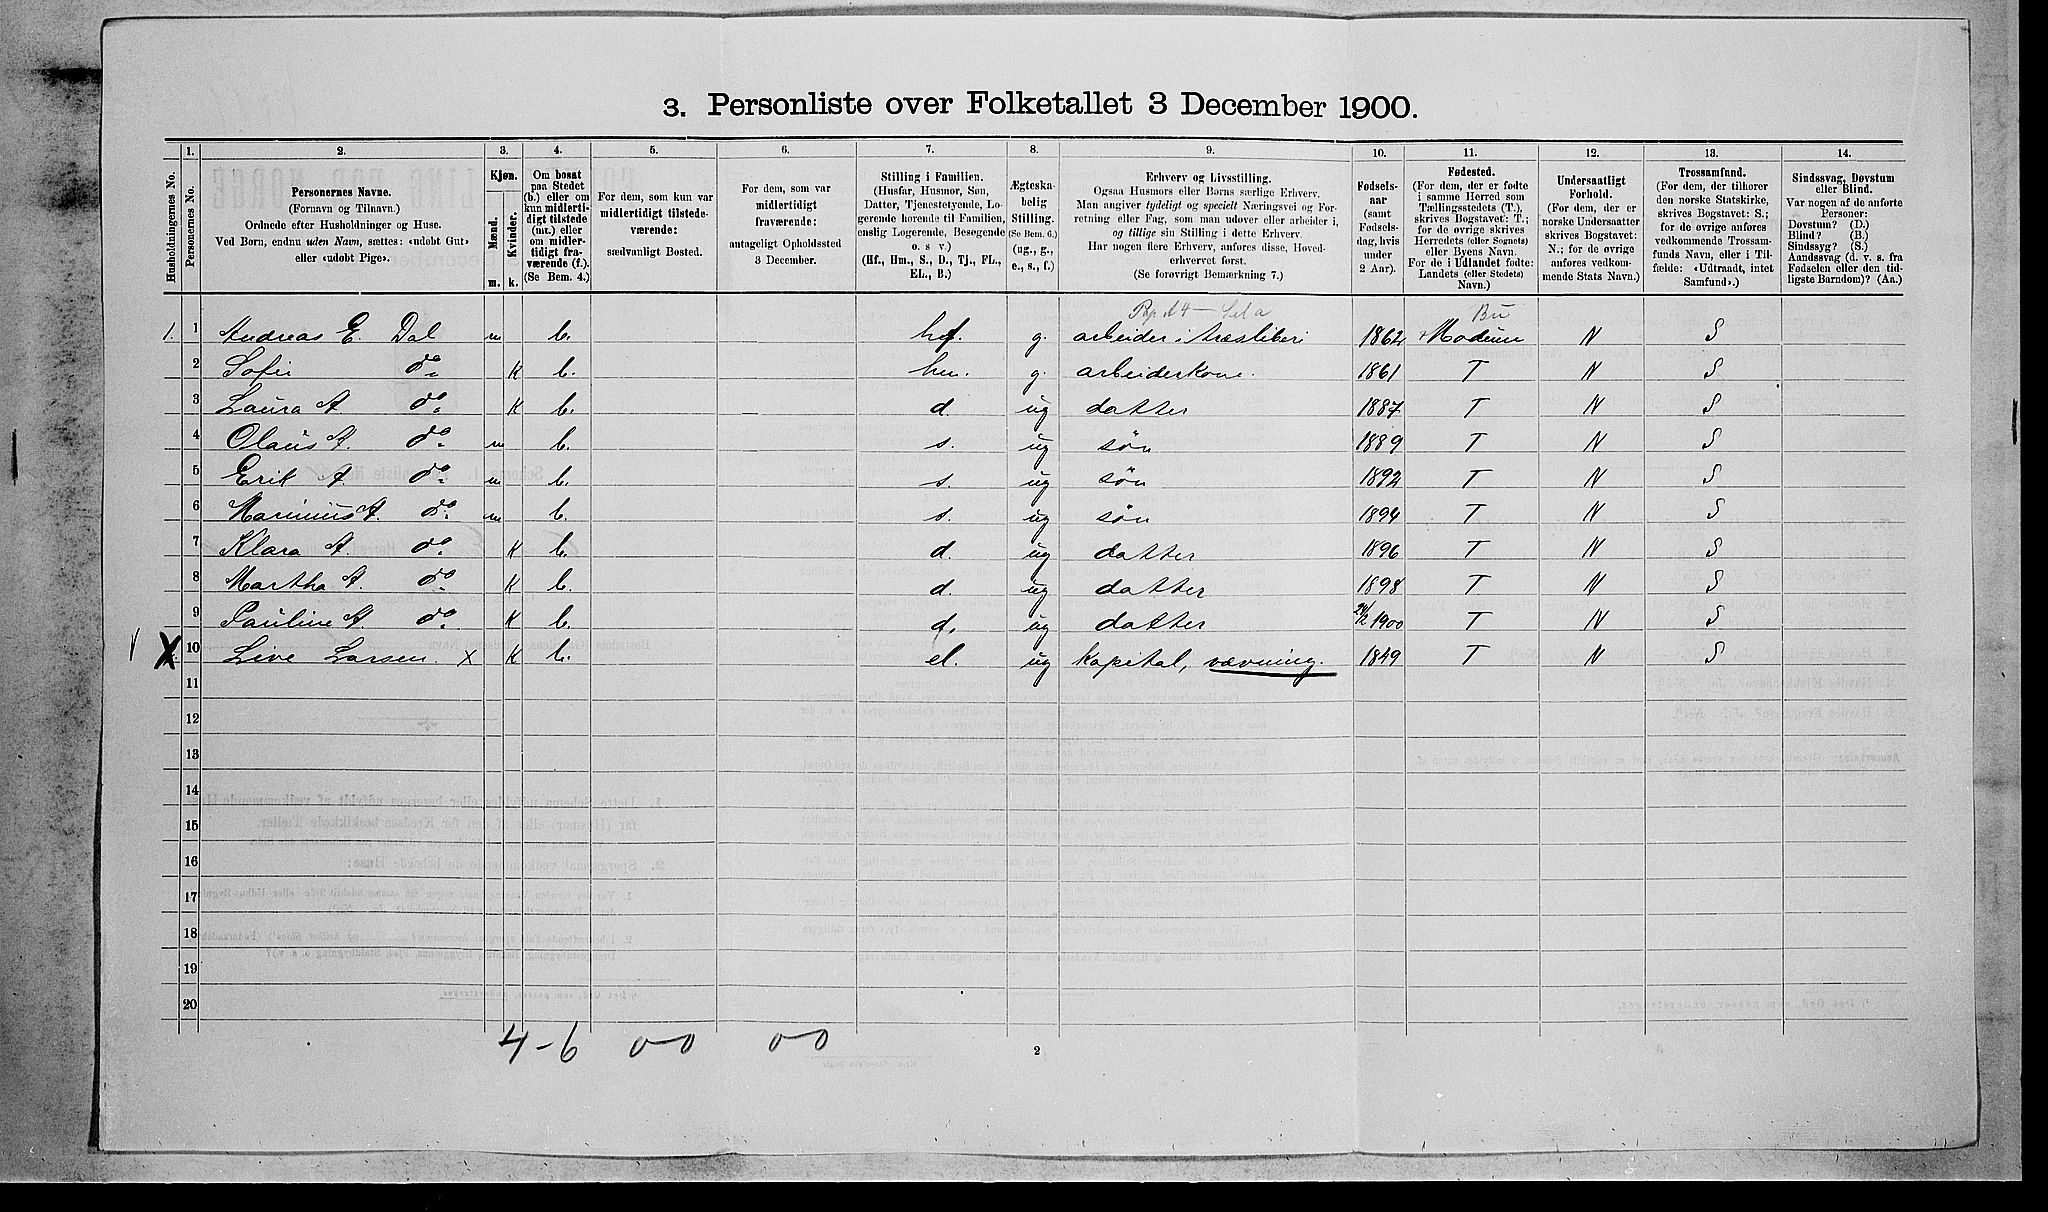 3. Personliste over Folketallet 3 December 1900.
Husholdningernes No.
1. Personernes No.
2. Personernes Navne. (Fornavn og Tilnavn.) Ordnede efter Husholdninger og Huse. Ved Børn, endnu uden Navn, sættes: «udøbt Gut» eller «udøbt Pige».
3. Kjøn. Mænd. Kvinder. m. k.
4. Om bosat paa Stedet (b.) eller om kun midlertidigt tilstede (mt.) eller om midlertidigt fraværende (f.). (Se Bem. 4.)
5. For dem, som kun var midlertidigt tilstedeværende: sædvanligt Bosted.
6. For dem, som var midlertidigt fraværende: antageligt Opholdssted 3 December.
7. Stilling i Familien. (Husfar, Husmor, Søn, Datter, Tjenestetyende, Logerende hørende til Familien, enslig Logerende, Besøgende o. s. v.) (Hf., Hm., S., D., Tj., FL., EL., B.)
8. Ægteskabelig Stilling. (Se Bem. 6.) (ug., g., e., s., f.)
9. Erhverv og Livsstilling. Ogsaa Husmors eller Børns særlige Erhverv. Man angiver tydeligt og specielt Næringsvei og Forretning eller Fag, som man udøver eller arbeider i, og tillige sin Stilling i dette Erhverv. Har nogen flere Erhverv, anføres disse, Hovederhvervet først. (Se forøvrigt Bemærkning 7.)
10. Fødselsaar (samt Fødselsdag, hvis under 2 Aar).
11. Fødested. (For dem, der er fødte i samme Herred som Tællingsstedets (T.), skrives Bogstavet: T.; for de øvrige skrives Herredets (eller Sognets) eller Byens Navn. For de i Udlandet fødte: Landets (eller Stedets) Navn.)
12. Undersaatligt Forhold. (For dem, der er norske Undersaatter skrives Bogstavet: N.; for de øvrige anføres vedkommende Stats Navn.)
13. Trossamfund. (For dem, der tilhører den norske Statskirke, skrives Bogstavet: S.; for de øvrige anføres vedkommende Trossamfunds Navn, eller i Tilfælde: «Udtraadt, intet Samfund».)
14. Sindssvag, Døvstum eller Blind. Var nogen af de anførte Personer: Døvstum? (D.) Blind? (B.) Sindssyg? (S.) Aandssvag (d. v. s. fra Fødselen eller den tidligste Barndom)? (Aa.)
Bu
1. 1 Andreas E. Dal m b. hf. g. arbeider i træsliberi 1862 Modum N S
2 Sofie do. K b. hm. g. arbeiderkone. 1861 T N S
3 Laura A do. K b. d ug datter 1887 T N S
4 Olaus A. do. m b. s. ug søn 1889 T N S
5 Erik A. do. m b. s. ug søn 1892 T N S
6 Marinius A. do. m b. s. ug søn 1894 T N S
7 Klara A do. K b. d. ug datter 1896 T N S
8 Martha A. do. K b. d. ug datter 1898 T N S
9 Pauline A. do. K b. d. ug datter 1900 T N S
10 Live Larsen. x K b. el. ug kapital, vævning. 1849 T N S
11
12
13
14
15
16
17
18
19
20
4-6 00 00
2